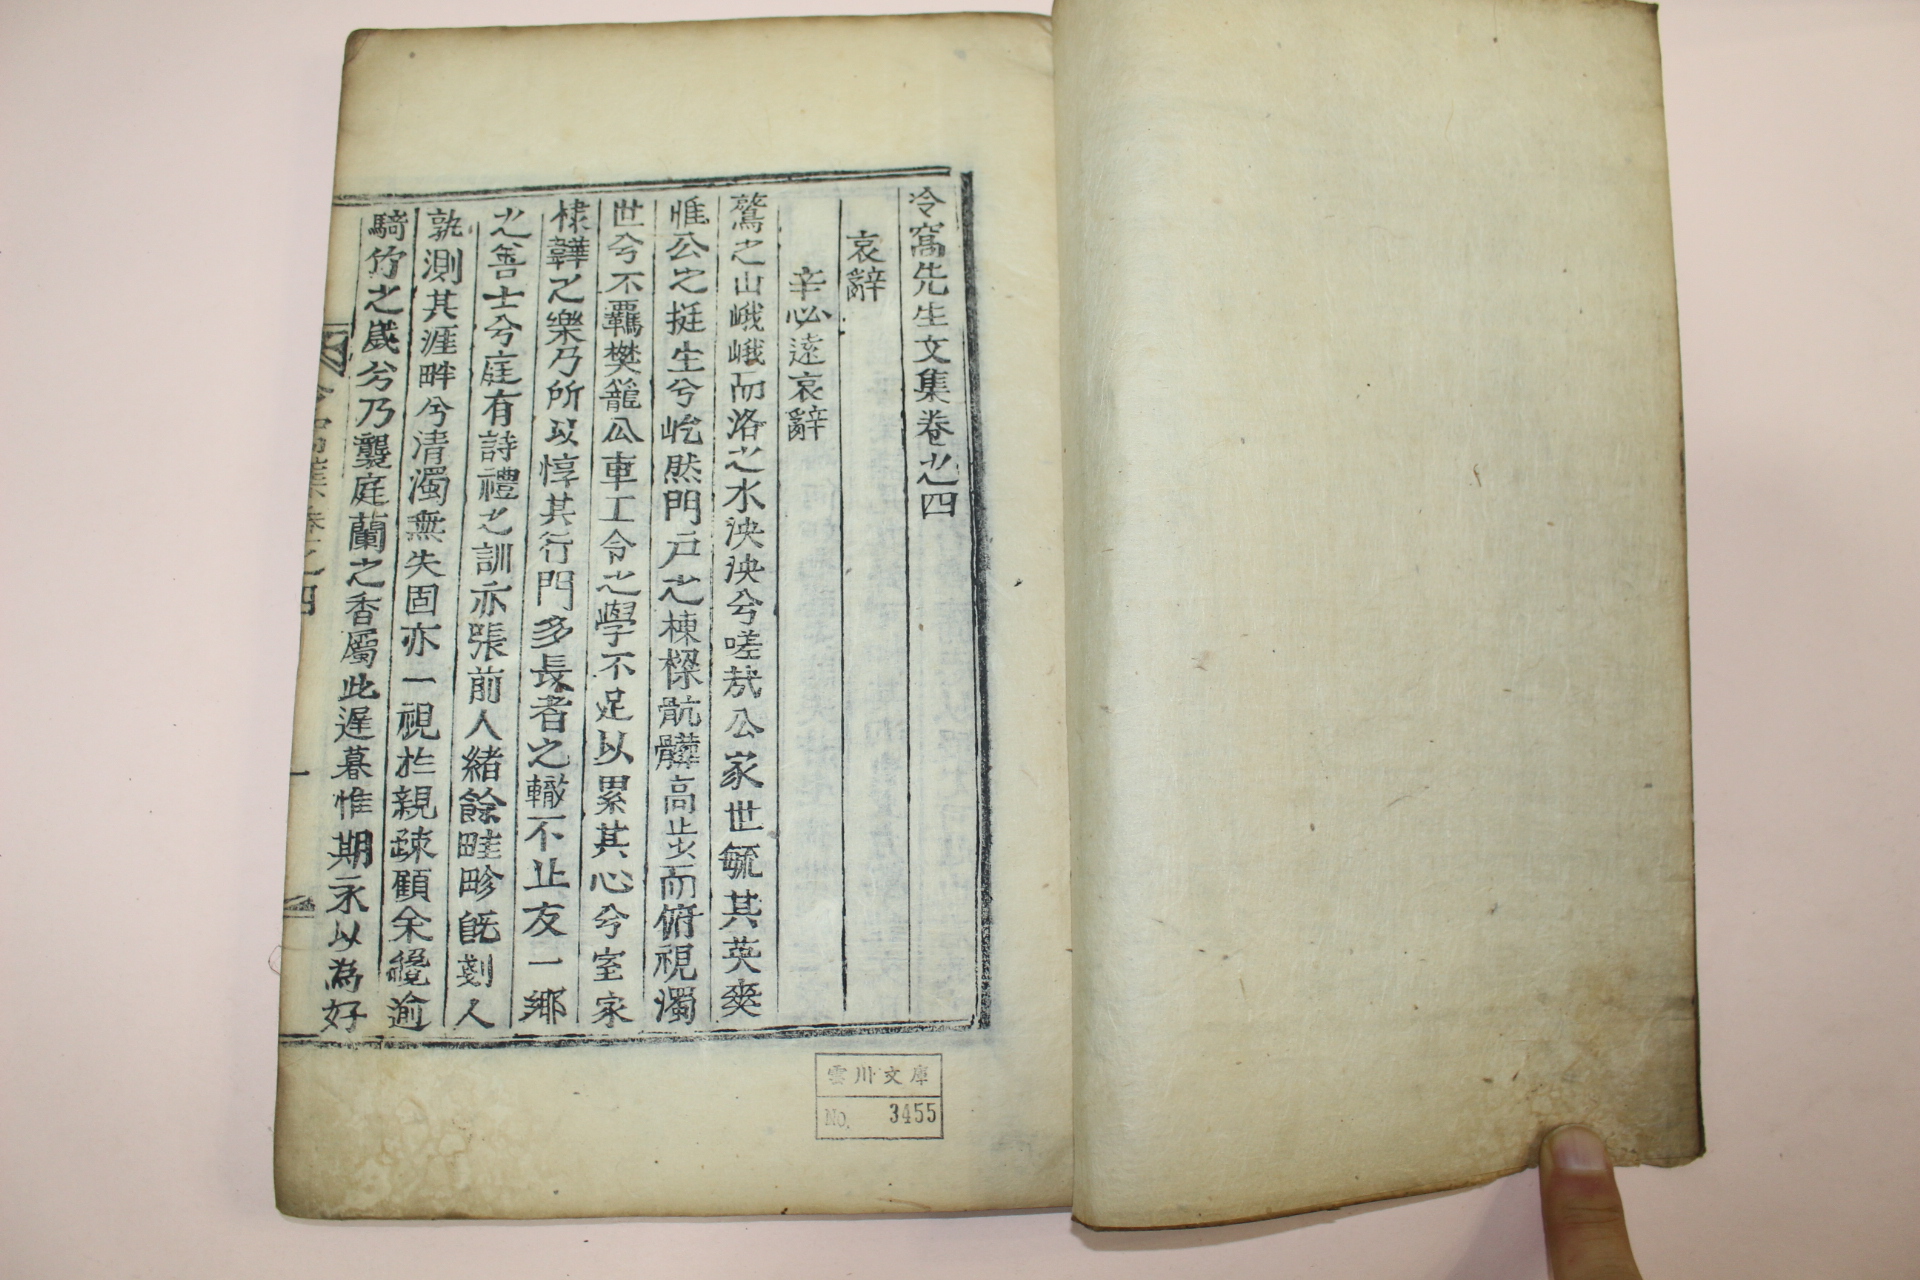 冷窩先生文集卷之四
哀辭
辛必遠哀辭
鷲之山峨峨而洛之水泱泱兮嗟哉公家世毓其英爽
惟公之挺生兮屹然門戶之棟樑骯髒高步而俯視濁
世兮不羈樊籠公車工令之學不足以累其心兮室家
棣韡之樂乃所以惇其行門多長者之轍不止友一鄉
之善士兮庭有詩禮之訓亦張前人緒餘畦畛旣剗人
孰測其涯畔兮清濁無失固亦一視於親疎顧余纔逾
騎竹之歲兮乃襲庭蘭之香屬此遲暮惟期永以爲好
冷窩集卷之四
一
雲川文庫
No. 3455